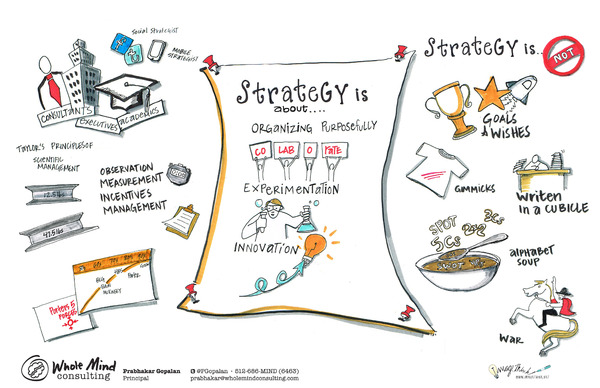 Social Strategist
MOBILE STRATEGIST
CONSULTANTS
EXECUTIVES
ACADEMICS
TAYLOR'S PRINCIPLES OF
SCIENTIFIC
MANAGEMENT
12.5 lbs
47.5 lbs
OBSERVATION
MEASUREMENT
INCENTIVES
MANAGEMENT
Porter's 5
FORCES
StrateGY is
about....
ORGANIZING PURPOSEFULLY
CO LAB O RATE
EXPERIMENTATION
INNOVATION
StrateGY is...
NOT
GOALS
& WISHES
GIMMICKS
Written
in a CUBICLE
SPOT
5Cs
3Cs
ALPHABET
SOUP
WAR
Whole Mind
consulting
Prabhakar Gopalan
Principal
@PGopalan · 512-686-MIND (6463)
prabhakar@wholemindconsulting.com
ImageThink
WWW.IMAGETHINK.NET